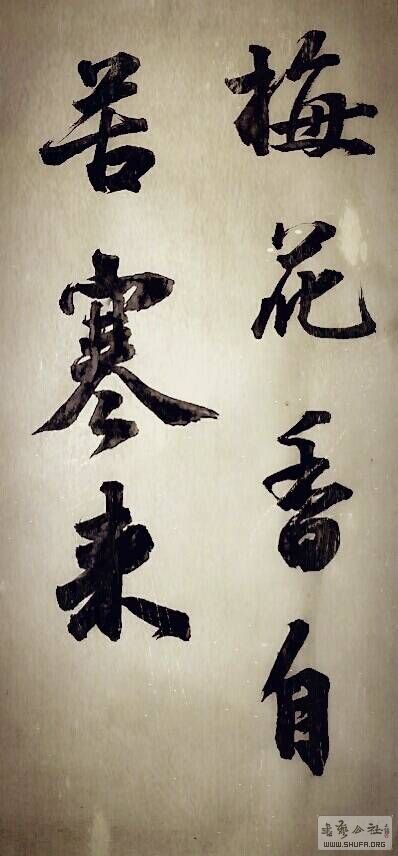 梅花香自
苦寒来
书艺公社
WWW.SHUFA.ORG